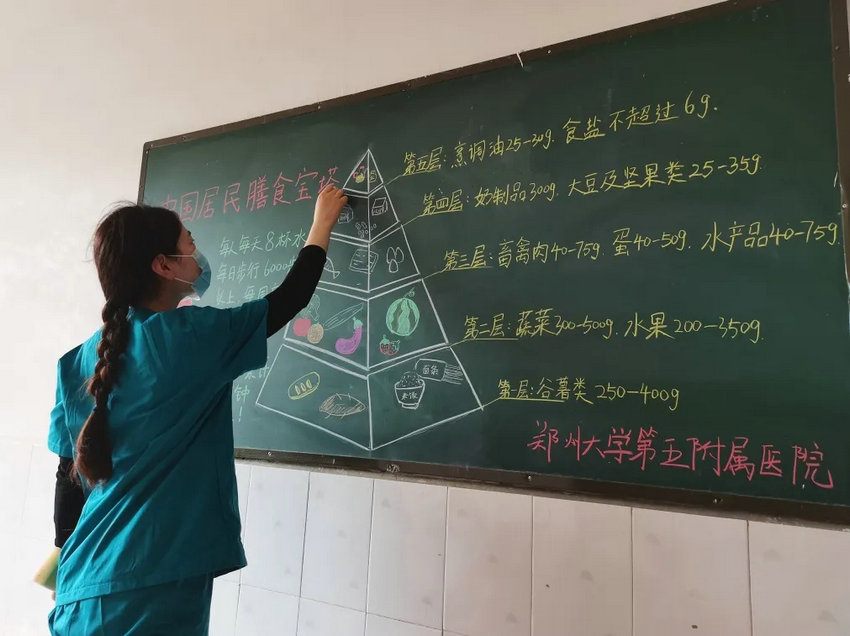 中国居民膳食宝塔
每人每天8杯水
每日步行6000
以上,每周
钟
!
第五层:烹调油25-30g.食盐不超过6g.
第四层:奶制品300g.大豆及坚果类25-35g
第三层:畜禽肉40-75g.蛋40-50g.水产品40-75g.
第二层:蔬菜300-500g.水果200-350g.
第一层:谷薯类250-400g
面条
米饭
郑州大学第五附属医院